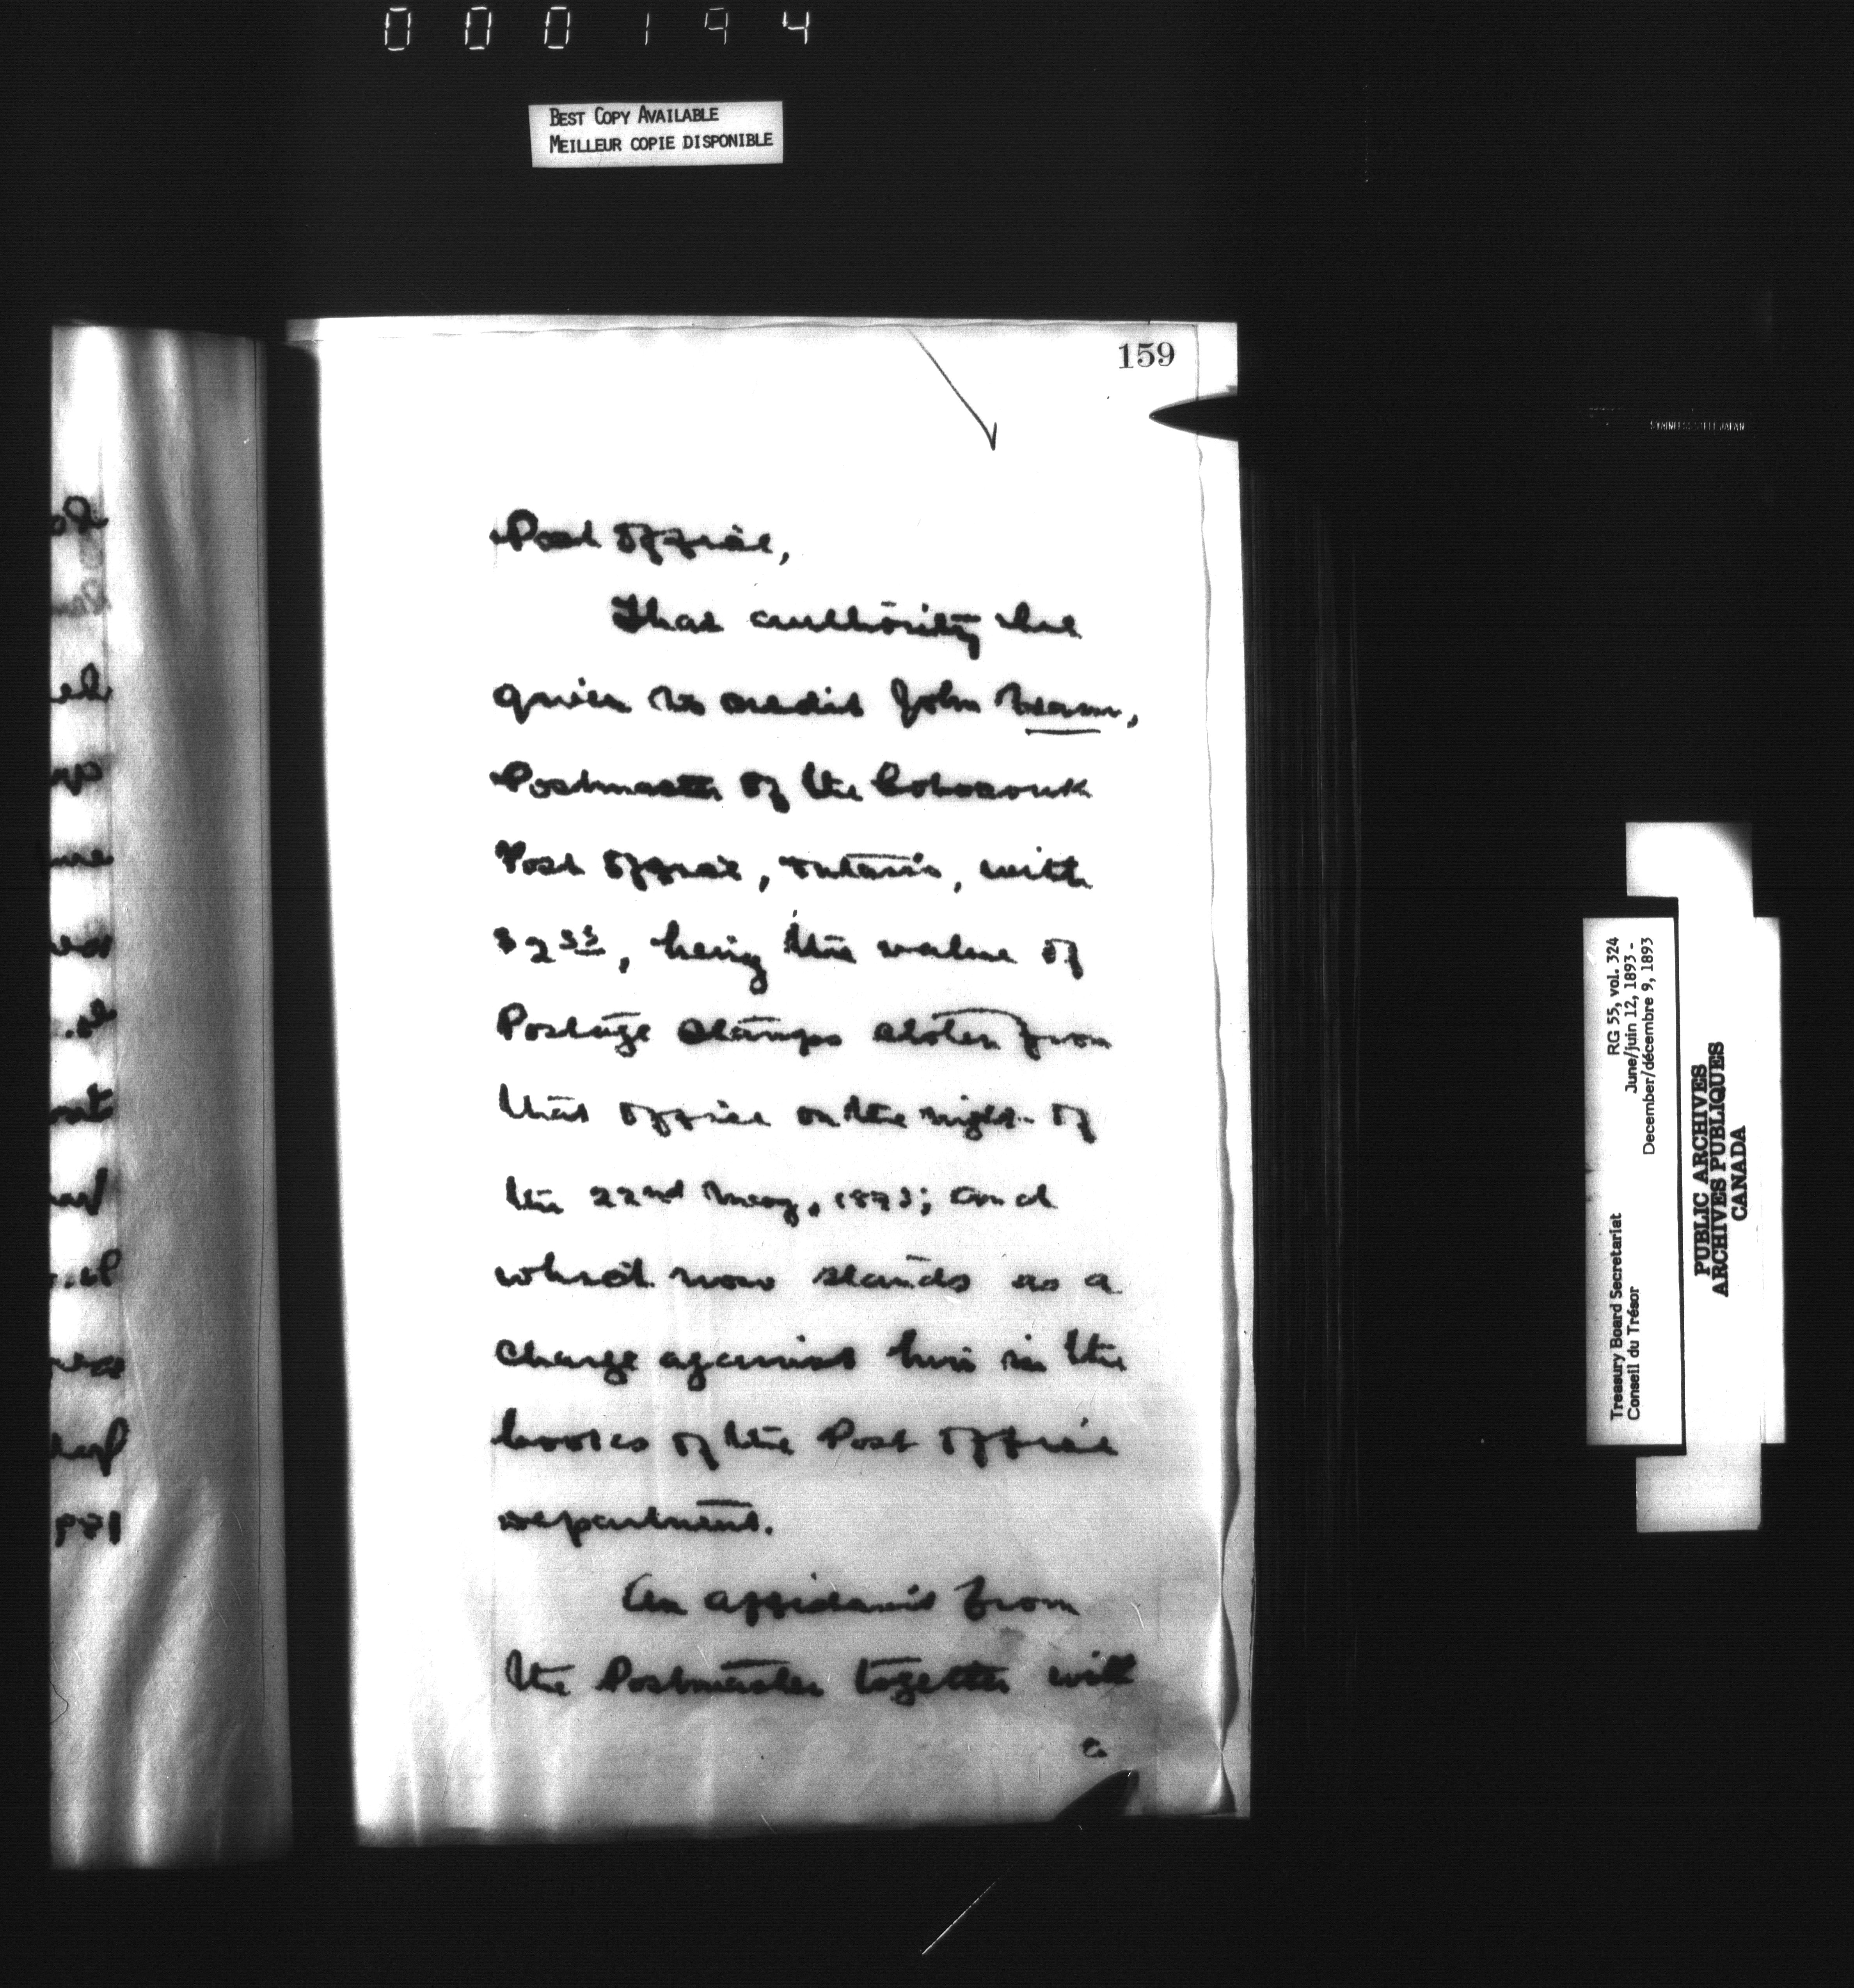 000194
BEST COPY AVAILABLE
MEILLEUR COPIE DISPONIBLE
159
Post Office,
That authority be
given to credit John
Postmaster of the Coboconk
Post Office, Ontario, with
$2 33, being the value of
Postage Stamps stolen from
that office on the night of
the 22nd May, 1893; and
which now stands as a
charge against him in the
books of the Post Office
Department.
An affidavit from
the Postmaster together with
a
RG 55, vol. 324
June/juin 12, 1893 -
December/décembre 9, 1893
Treasury Board Secretariat
Conseil du Trésor
PUBLIC ARCHIVES
ARCHIVES PUBLIQUES
CANADA